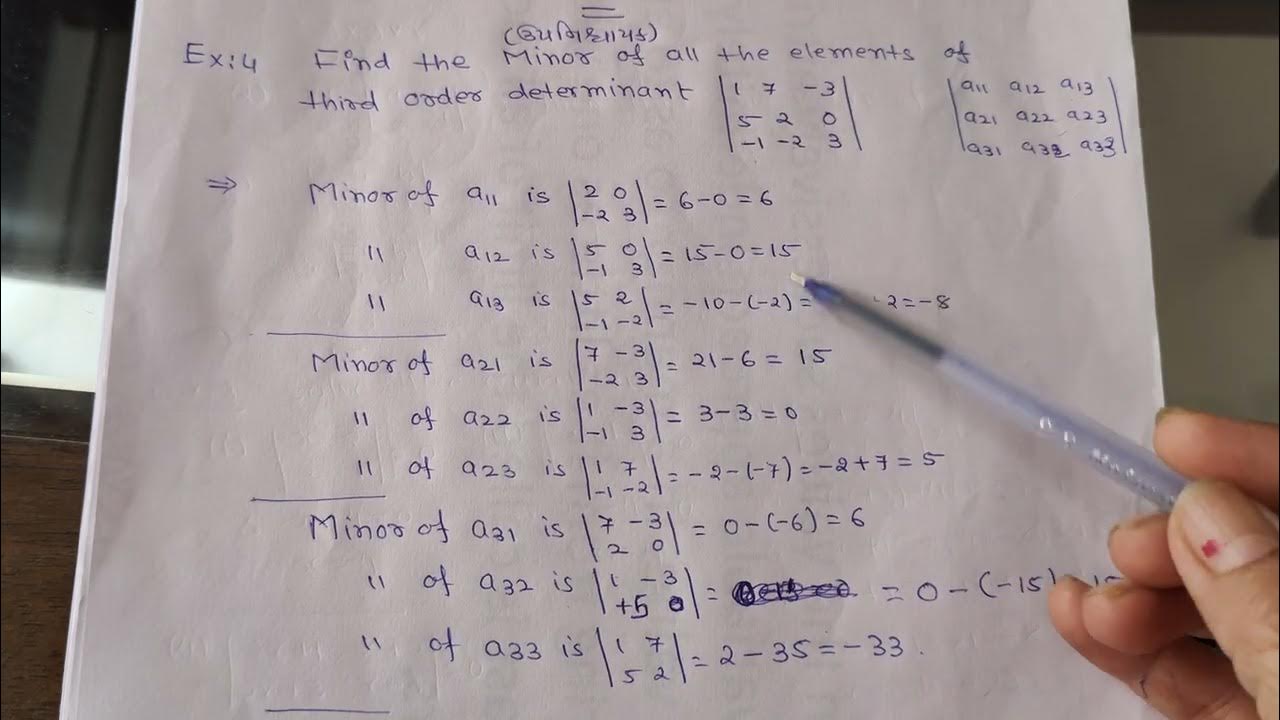 (ઉપનિશ્ચાયક)
Ex:4 Find the Minor of all the elements of
third order determinant | 1 7 -3 | | a11 a12 a13 |
| 5 2 0 | | a21 a22 a23 |
| -1 -2 3 | | a31 a32 a33 |
⇒ Minor of a11 is | 2 0 | = 6-0 = 6
| -2 3 |
" a12 is | 5 0 | = 15-0 = 15
| -1 3 |
" a13 is | 5 2 | = -10-(-2) = 2 = -8
| -1 -2 |
Minor of a21 is | 7 -3 | = 21-6 = 15
| -2 3 |
" of a22 is | 1 -3 | = 3-3 = 0
| -1 3 |
" of a23 is | 1 7 | = -2-(-7) = -2+7 = 5
| -1 -2 |
Minor of a31 is | 7 -3 | = 0-(-6) = 6
| 2 0 |
" of a32 is | 1 -3 | = = 0-(-15)
| +5 0 |
" of a33 is | 1 7 | = 2-35 = -33.
| 5 2 |